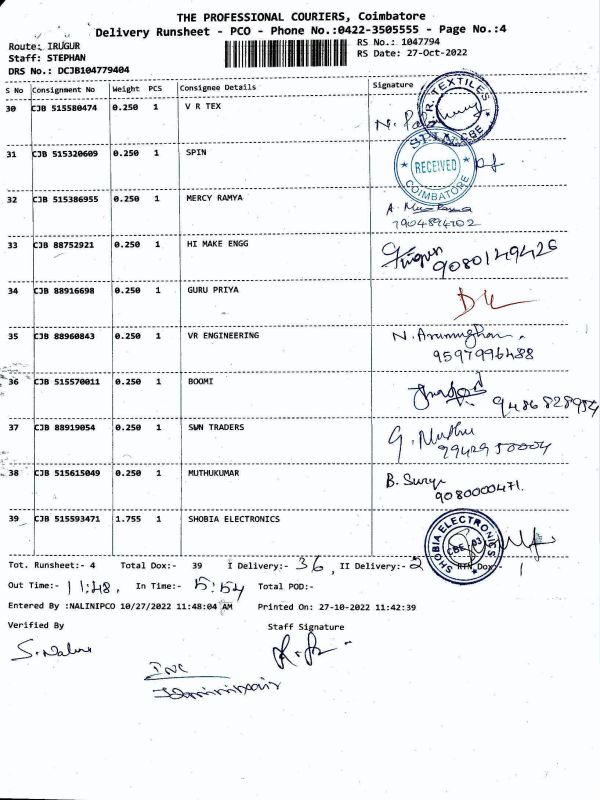 THE PROFESSIONAL COURIERS, Coimbatore
Delivery Runsheet - PCO - Phone No.:0422-3505555 - Page No.:4
Route: IRUGUR RS No.: 1047794
Staff: STEPHAN RS Date: 27-Oct-2022
DRS No.: DCJB104779404
S No Consignment No Weight PCS Consignee Details Signature
30 CJB 515580474 0.250 1 V R TEX
31 CJB 515320609 0.250 1 SPIN RECEIVED COIMBATORE
32 CJB 515386955 0.250 1 MERCY RAMYA
33 CJB 88752921 0.250 1 HI MAKE ENGG 9080149426
34 CJB 88916698 0.250 1 GURU PRIYA
35 CJB 88960843 0.250 1 VR ENGINEERING N. Arumugham
9597996488
36 CJB 515570011 0.250 1 BOOMI 9486828954
37 CJB 88919054 0.250 1 SWN TRADERS G. Muthu
38 CJB 515615049 0.250 1 MUTHUKUMAR B. Surya
9080000471.
39 CJB 515593471 1.755 1 SHOBIA ELECTRONICS SHOBIA ELECTRONICS CBE
Tot. Runsheet:- 4 Total Dox:- 39 I Delivery:- 36, II Delivery:- 2 RTN Dox:- 1
Out Time:- 11:48, In Time:- 5:54 Total POD:-
Entered By :NALINIPCO 10/27/2022 11:48:04 AM Printed On: 27-10-2022 11:42:39
Verified By Staff Signature